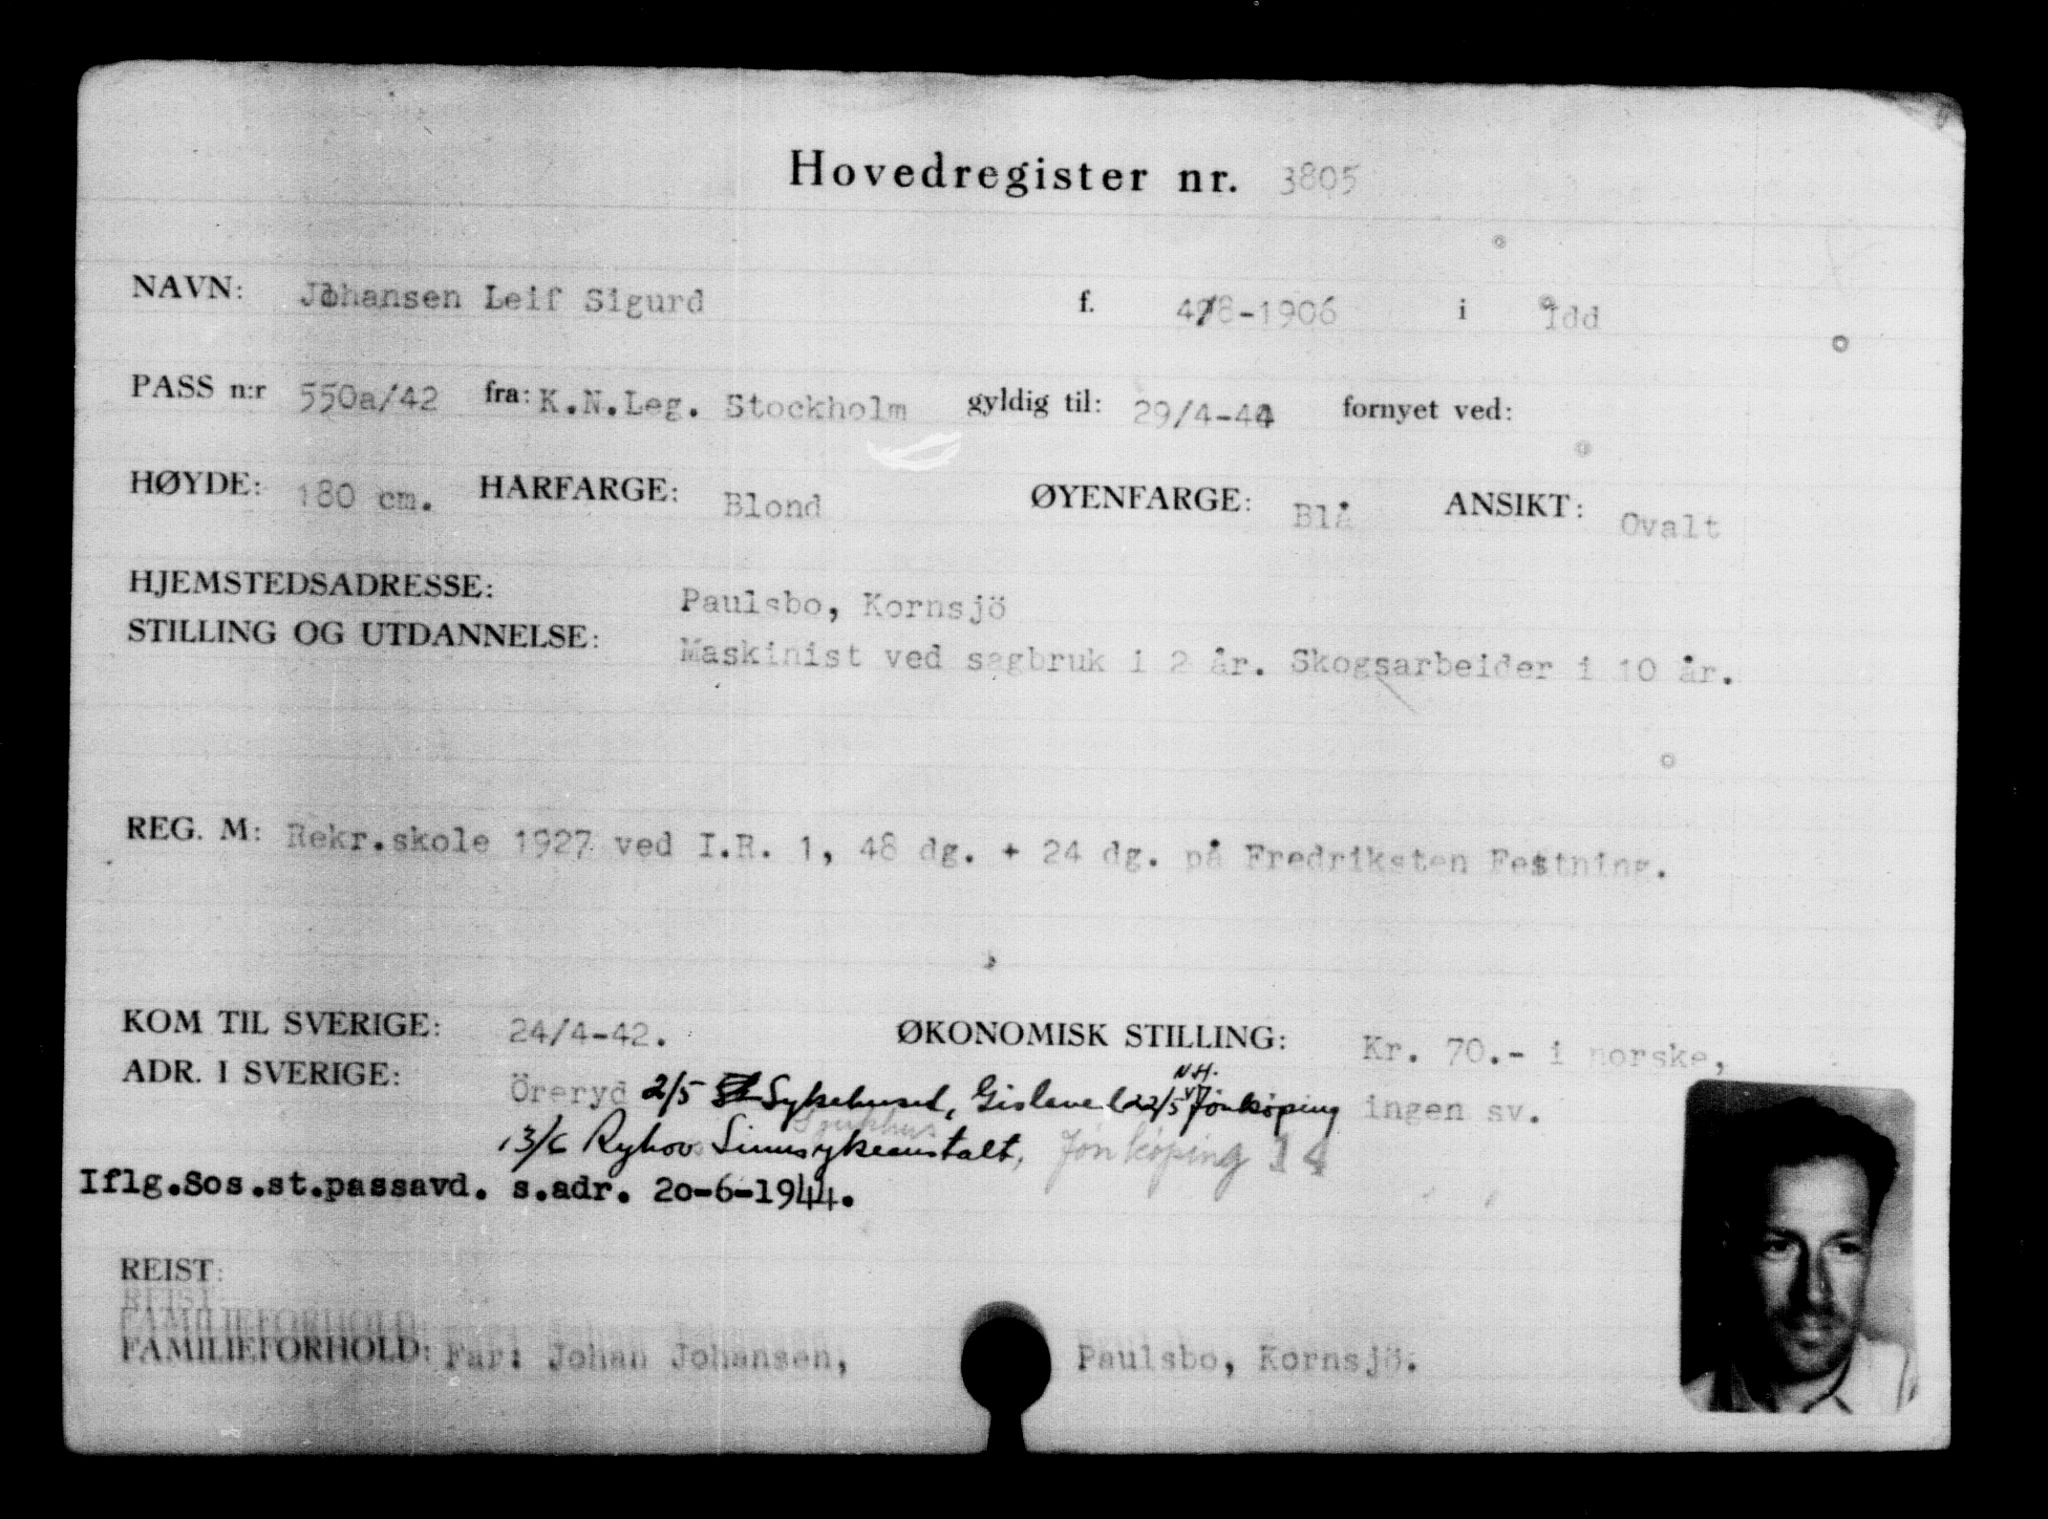 Hovedregister nr. 3805
NAVN: Johansen Leif Sigurd f. 4/8-1906 i Idd
PASS n:r 550a/42 fra: K.N.Leg. Stockholm gyldig til: 29/4-44 fornyet ved:
HØYDE: 180 cm. HARFARGE: Blond ØYENFARGE: Blå ANSIKT: Ovalt
HJEMSTEDSADRESSE: Paulsbo, Kornsjö
STILLING OG UTDANNELSE: Maskinist ved sagbruk i 2 år. Skogsarbeider i 10 år.
REG. M: Rekr.skole 1927 ved I.R. 1, 48 dg. + 24 dg. på Fredriksten Festning.
KOM TIL SVERIGE: 24/4-42. ØKONOMISK STILLING: Kr. 70.- i norske,
ADR. I SVERIGE: Öreryd 2/5 Sykehuset, Gislaved 22/5 Jönköping ingen sv.
13/6 Ryhov Sinnsykeanstalt, Jönköping 14
Iflg.Sos.st.passavd. s.adr. 20-6-1944.
REIST:
REIST
FAMILIEFORHOLD:
FAMILIEFORHOLD: Far: Johan Johansen, Paulsbo, Kornsjö.